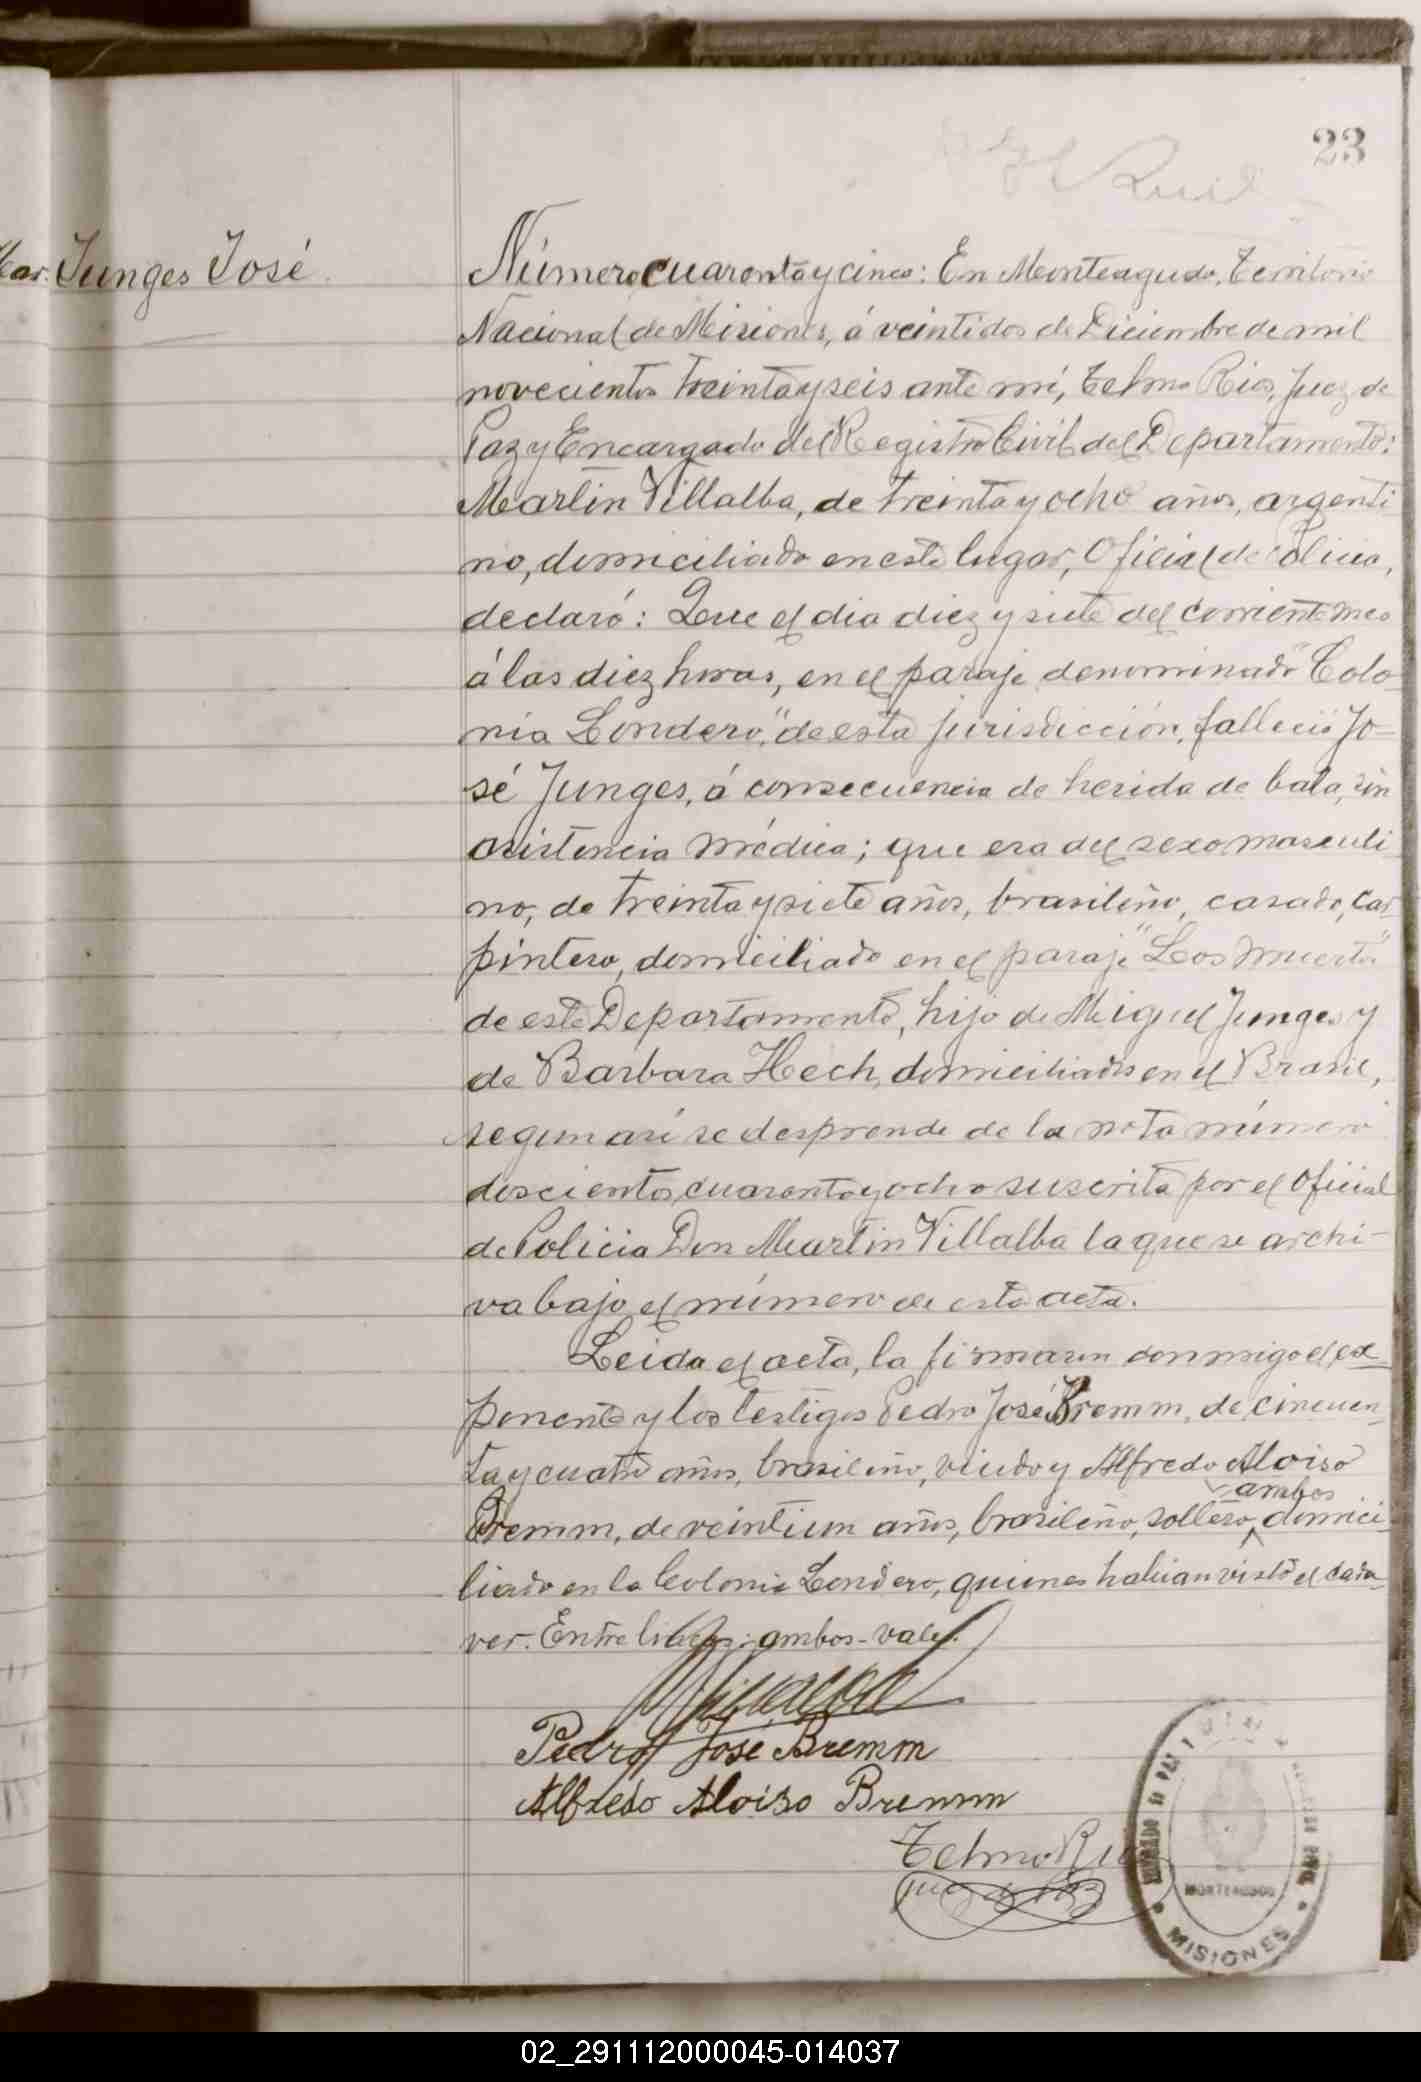 23
Junges José
Número cuarenta y cinco: En Monteagudo, Territorio
Nacional de Misiones, á veintidos de Diciembre de mil
novecientos treinta y seis ante mí, Telmo Rios, Juez de
Paz y Encargado del Registro Civil del Departamento:
Martin Villalba, de treinta y ocho años, argenti
no, domiciliado en este lugar, Oficial de Policia,
declaró: Que el dia diez y siete del corriente mes
á las diez horas, en el paraje denominado "Colo-
nia Londero," de esta jurisdicción, falleció Jo-
sé Junges, á consecuencia de herida de bala, sin
asistencia médica; que era del sexo masculi
no, de treinta y siete años, brasileño, casado, car
pintero, domiciliado en el paraje "Los Muertos"
de este Departamento, hijo de Miguel Junges y
de Barbara Hech, domiciliados en el Brasil,
segun asi se desprende de la nota número
doscientos cuarenta y ocho suscrita por el Oficial
de Policia Don Martin Villalba la que se archi-
va bajo el número de esta acta.
Leida el acta, la firmaron conmigo el ex
ponente y los testigos Pedro José Bremm, de cincuen
ta y cuatro años, brasileño, viudo y Alfredo Aloiso
ambos
Bremm, de veintiun años, brasileño, soltero, domici
liado en la Colonia Londero, quienes habian visto el cada
ver. Entre lineas: ambos - vale.
Pedro José Bremm
Alfredo Aloiso Bremm
Telmo Rios
Juez de Paz
JUZGADO DE PAZ Y
MONTEAGUDO
MISIONES
02_291112000045-014037